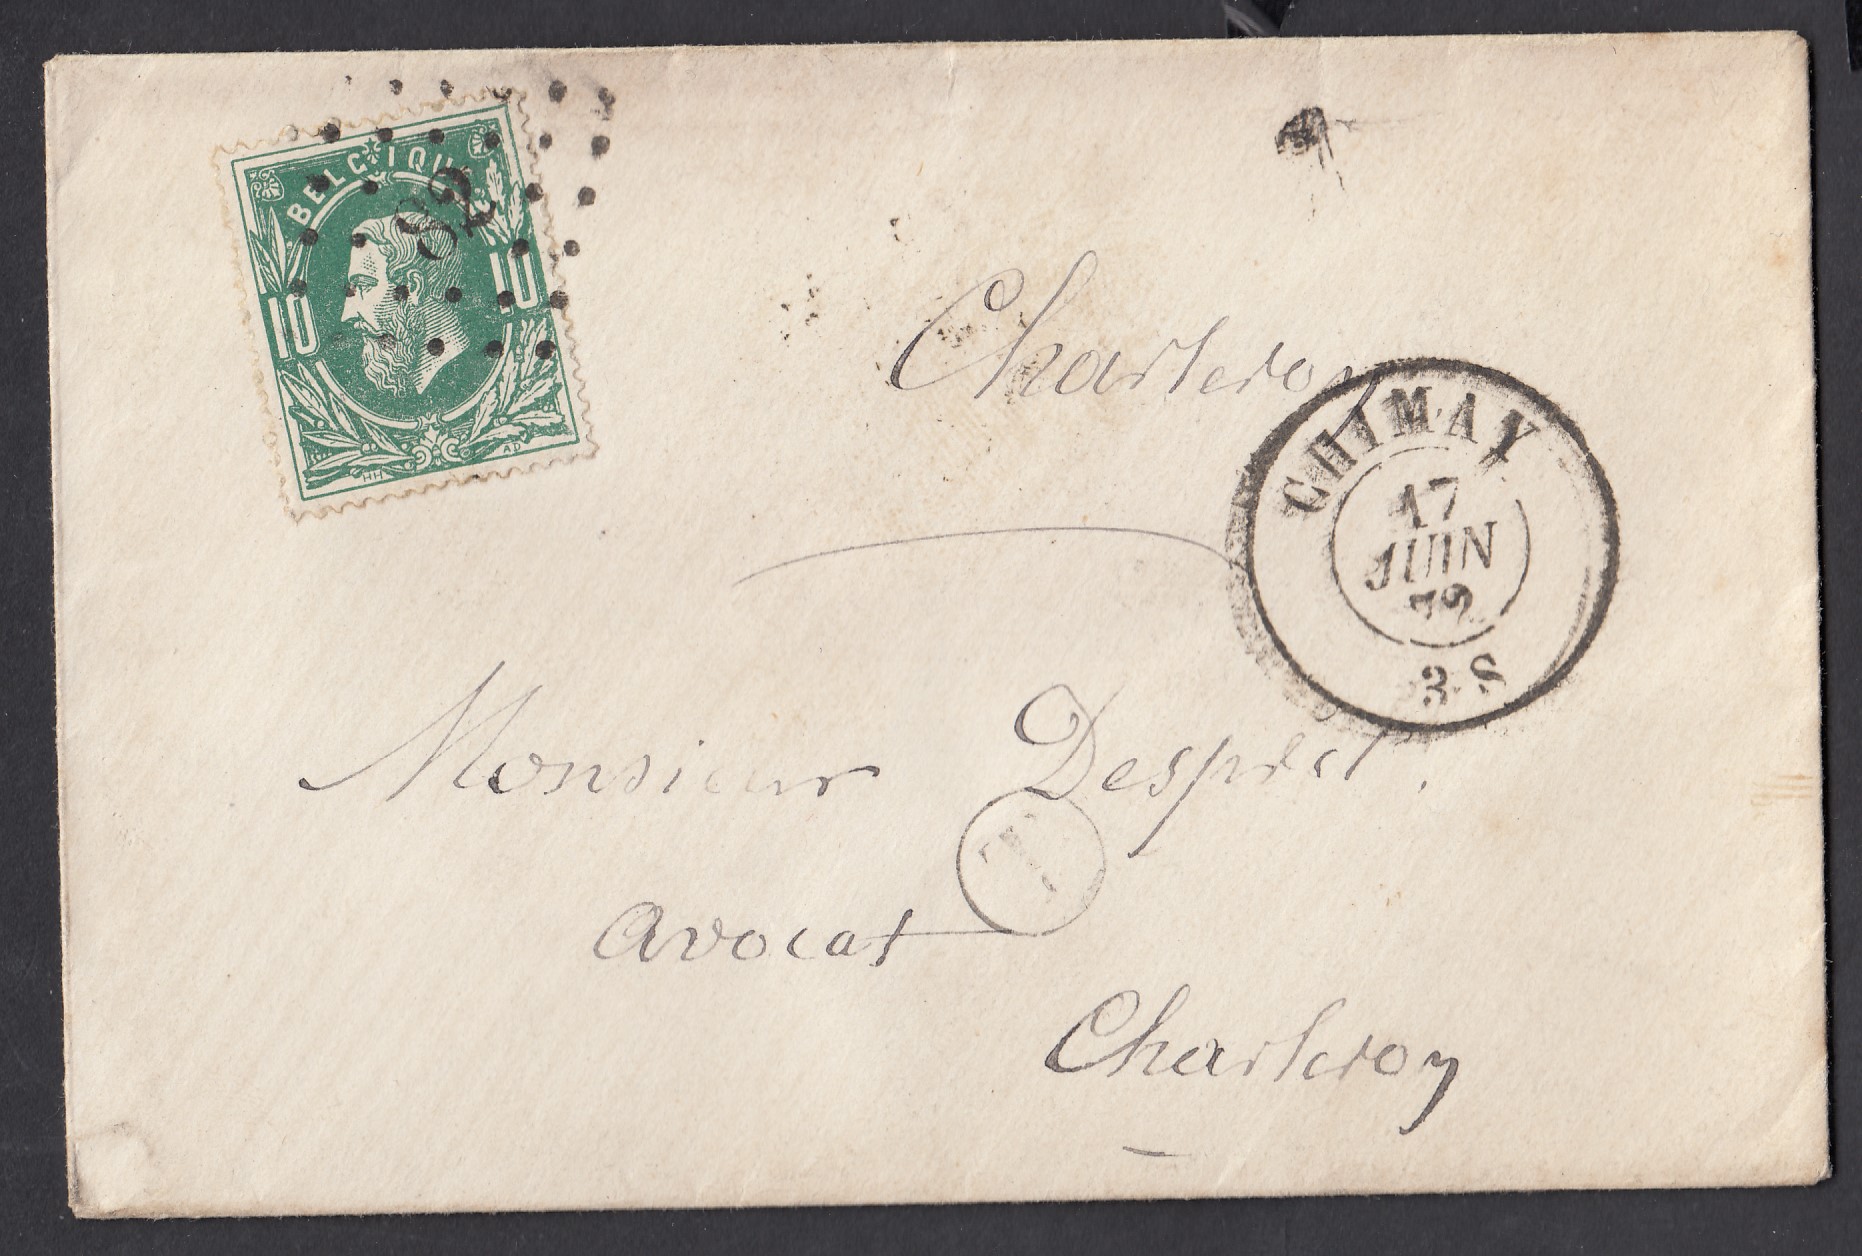 BELGIQUE
82
10 10
HH AD
Charleroy
CHIMAY
17
JUIN
79
3 S
Monsieur Desprêt.
T
avocat
Charleroy